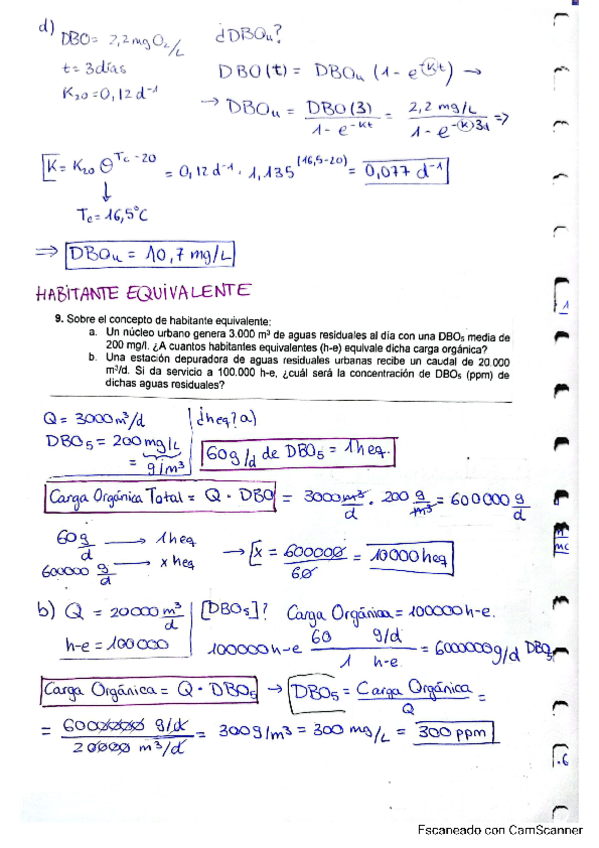 d) DBO = 2,2 mg O₂/L ¿DBOu?
t = 3 días DBO(t) = DBOu (1 - e^(-Kt)) →
K₂₀ = 0,12 d⁻¹ → DBOu = DBO(3) / 1 - e^(-Kt) = 2,2 mg/L / 1 - e^(-(K)3d) ⇒
K = K₂₀ Θ^(Tc - 20) = 0,12 d⁻¹ · 1,135^(16,5-20) = 0,077 d⁻¹
↓
Tc = 16,5°C
⇒ DBOu = 10,7 mg/L
HABITANTE EQUIVALENTE
9. Sobre el concepto de habitante equivalente:
a. Un núcleo urbano genera 3.000 m³ de aguas residuales al día con una DBO₅ media de
200 mg/l. ¿A cuantos habitantes equivalentes (h-e) equivale dicha carga orgánica?
b. Una estación depuradora de aguas residuales urbanas recibe un caudal de 20.000
m³/d. Si da servicio a 100.000 h-e, ¿cuál será la concentración de DBO₅ (ppm) de
dichas aguas residuales?
Q = 3000 m³/d ¿heq? a)
DBO₅ = 200 mg/L 60 g/d de DBO₅ = 1 heq.
= g/m³
Carga Orgánica Total = Q · DBO = 3000 m³/d · 200 g/m³ = 600000 g/d
60 g/d → 1 heq
600000 g/d → x heq → x = 600000 / 60 = 10000 heq
b) Q = 20000 m³/d [DBO₅]? Carga Orgánica = 100000 h-e.
h-e = 100000 100000 h-e 60 g/d / 1 h-e. = 6000000 g/d DBO₅
Carga Orgánica = Q · DBO₅ → DBO₅ = Carga Orgánica / Q =
= 6000000 g/d / 20000 m³/d = 300 g/m³ = 300 mg/L = 300 ppm
Escaneado con CamScanner